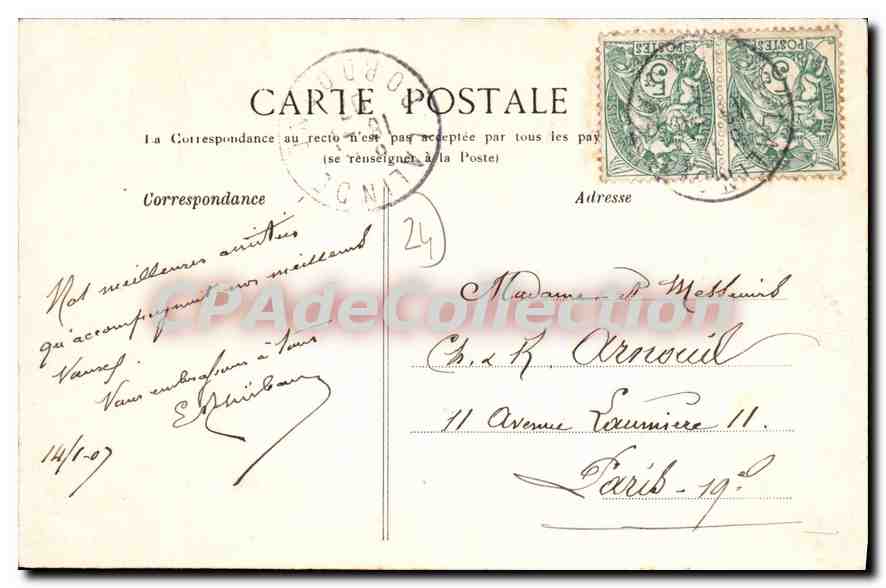 CARTE POSTALE
La Correspondance au recto n'est pas acceptée par tous les pay
(se renseigner à la Poste)
Correspondance
Adresse
24
Nos meilleures amitiés
qu'accompagnent nos meilleurs
Vous embrassons à tous
14/1-07
Madame et Messieurs
Ch. & R. Arnouil
11 Avenue Laumière 11.
Paris - 19e
POSTES
5c
POSTES
5c
DORDOGNE
CPAdeCollection